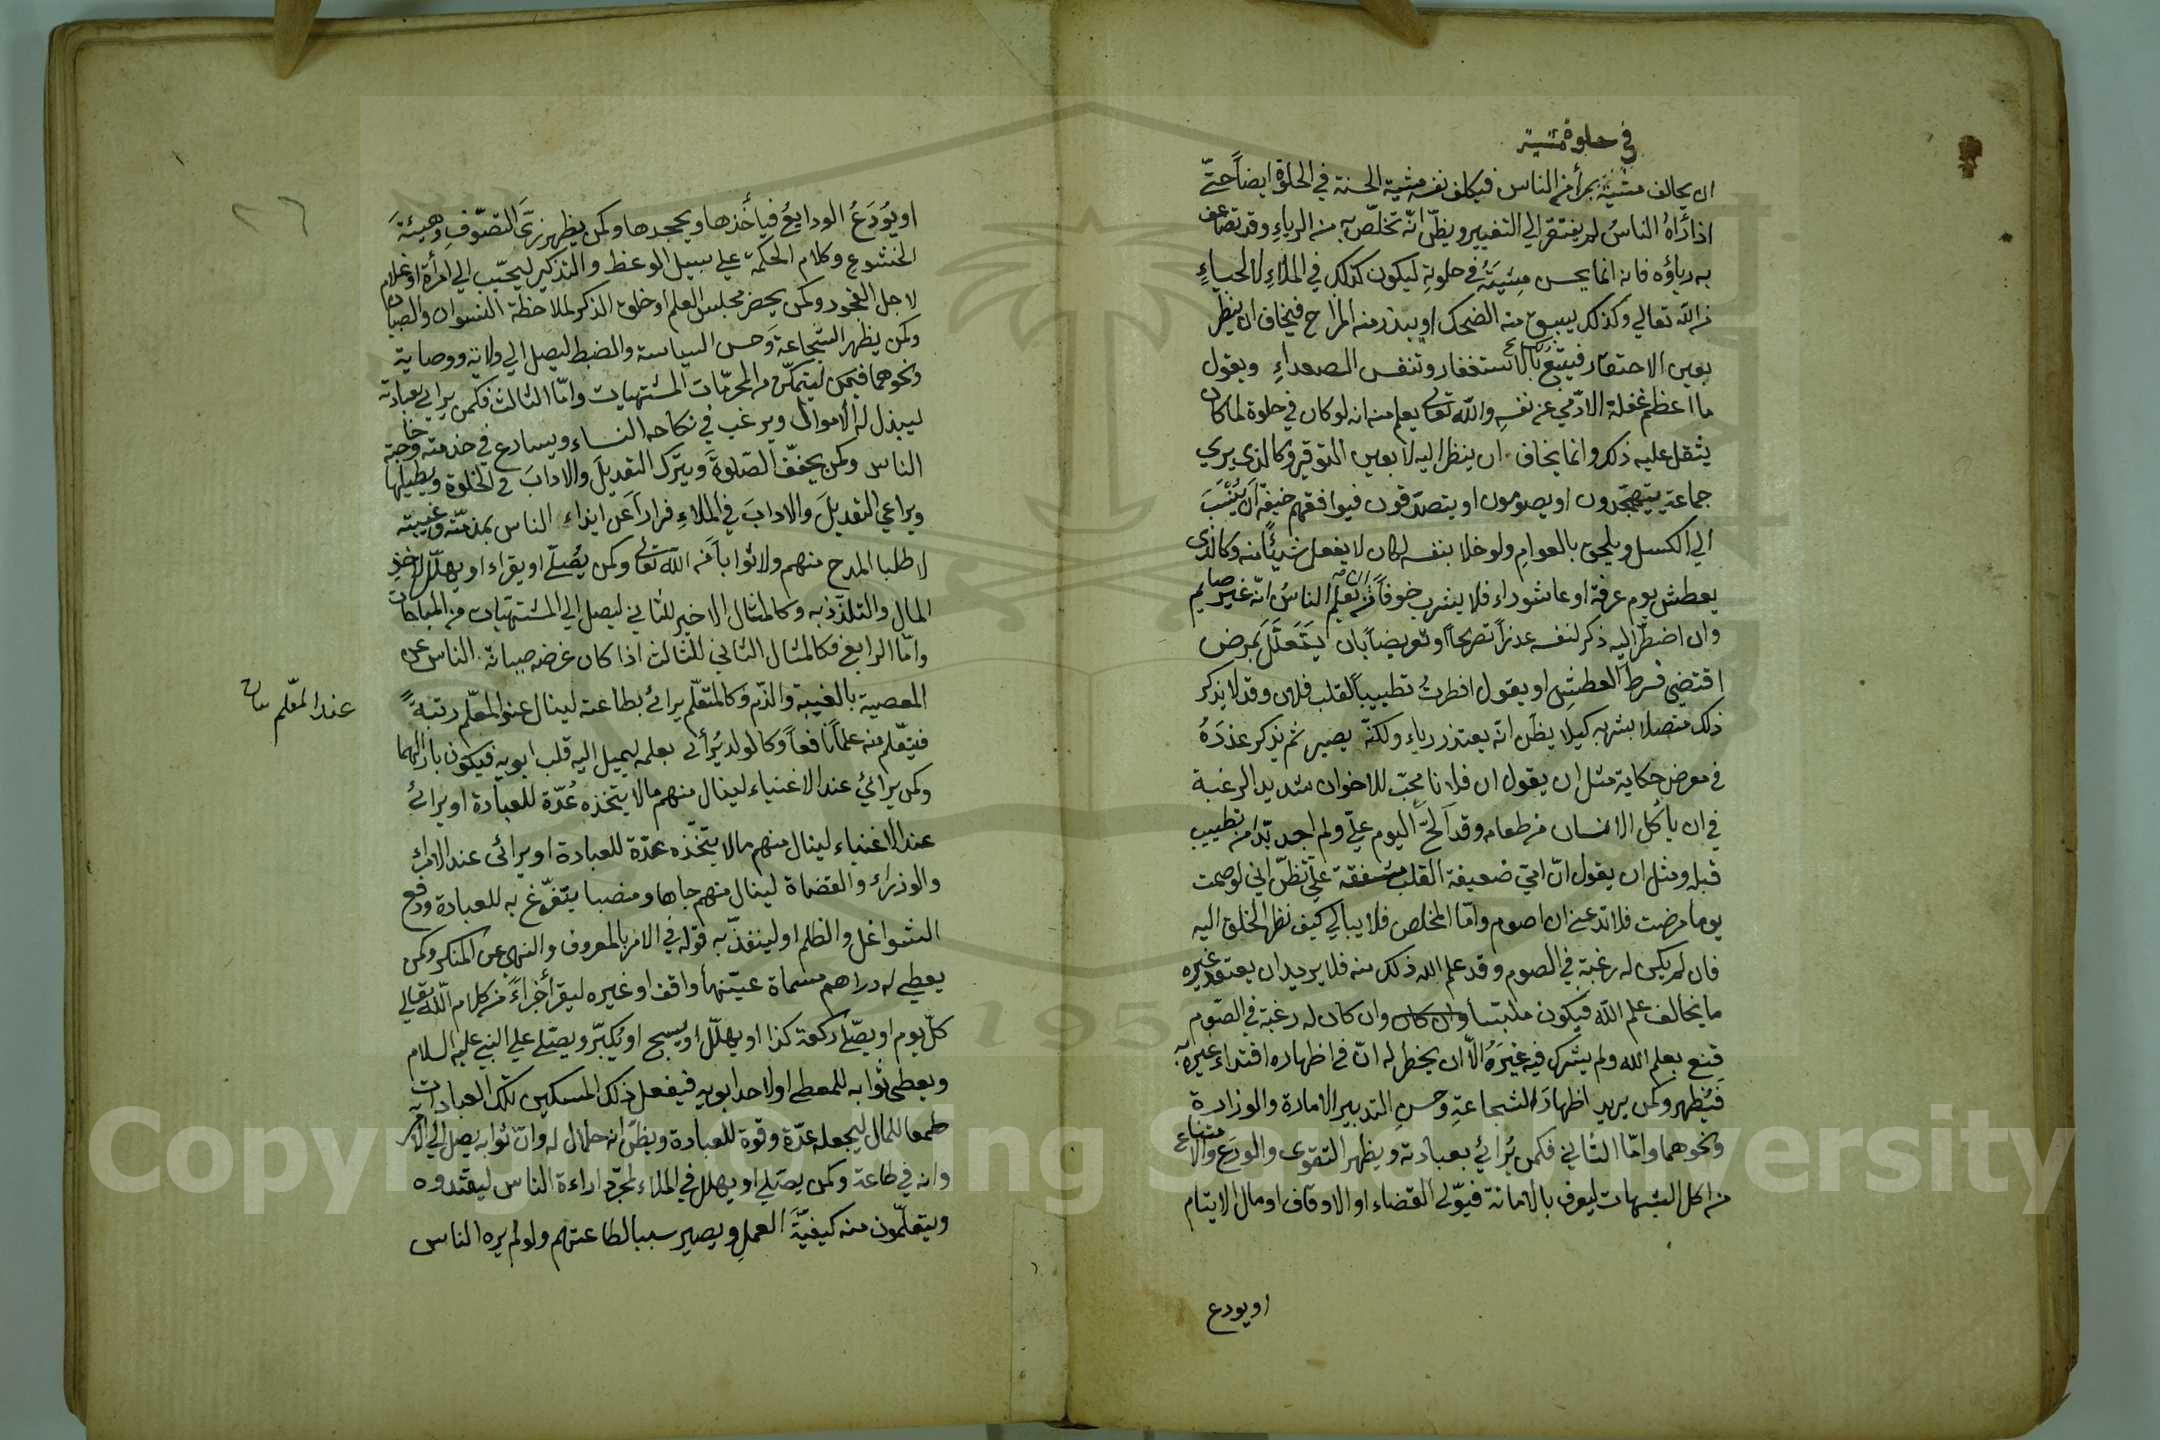 في خلوة مشيته
ان يخالف مشيته بمرأى من الناس فيكلف نفسه مشية الحسنة في الخلوة ايضاً حتّى
اذا رأاهُ الناسُ لم يفتقر الي التغيير ويظنّ انّه تخلّص به من الرياءِ وقد تضاعف
به رياؤه فانه انما يحسن مِشيَتَهُ في خلوتهِ ليكون كذلك في الملاءِ لا لحياءٍ
من الله تعالي وكذلك يسبق منه الضحك او يبدر منه المزاح فيخاف ان ينظر
بعين الاحتقار فيتبعُ بالاستغفار وتنفس الصعداءِ ويقول
ما اعظم غفلة الادمي عن نفسهِ والله تعالى يعلم منه انه لو كان في خلوة لما كان
يثقل عليه ذلك وانما يخاف ان ينظر اليه لا بعين التوقير وكالذي يري
جماعة يتهجّدون او يصومون او يتصدّقون فيوافقهم خيفة اَن يُنْسَبَ
الي الكسل ويلحق بالعوامِ ولو خلا بنفسه لكان لا يفعل شيئًا منه وكالذى
يعطش يوم عرفة او عاشوراء فلا يشرب خوفاً من ان يعلم الناسُ انّه غير صايم
وان اضطرّ اليه ذكر لنفسه عذراً تصريحاً او تعريضاً بان يَتَعَلَّلَ بمرض
اِقتضي فرط العطشِ او يقول افطرتُ تطييباً لقلب فلان وقد لا يذكر
ذلك متصلا بشربه كيلا يظن انه يعتذر رياء ولكنّه يصبر ثم يذكر عذرَهُ
في معرض حكاية مثل ان يقول ان فلانا محبّ للاخوان شديد الرغبة
في ان يأكل الانسان من طعامه وقد اَلحّ اليوم عليّ ولم اجد بدّا من تطييب
قبله ومثل ان يقول انّ امّي ضعيفة القلب مشفقة عليّ تظنّ اني لو صمت
يوما مرضت فلا تدعني ان اصوم وامّا المخلص فلا يبالي كيف نظر الخلق اليه
فان لم يكن له رغبة في الصوم وقد علم الله ذلك منه فلا يريد ان يعتقد غيره
ما يخالف علم الله فيكون ملبتسا وان كان وان كان له رغبة في الصّوم
قنع بعلم الله ولم يشرك فيه غيرَهُ الاّ ان يخطر له انّ في اظهاره اقتداء غيره به
فَيُظهر وكمن يريد اظهارَ الشجاعةِ وحسنِ التدبير الامارة والوزارة
ونحوهما وامّا الثاني فكمن يُرائي بعبادته ويظهر التقوى والورَعَ والامتناع
من اكل الشبهات ليعرف بالامانة فيوّلى القضاء او الاوقاف او مال الايتام
او يودع
او يُودَعُ الودايعُ فيأخذها ويجحدها وكمن يظهر زىَّ التصّوفِ وهيئةَ
الخشوعِ وكلام الحكمة علي سبيل الوعظ والتذكير ليحبّب الي امرأة او غلام
لاجل الفجور وكمن يحضر مجلس العلم او حلق الذكر لملاحظة النسوان والصبيان
وكمن يظهر الشجاعة وَحسن السياسة والضبط ليصل الي ولاية ووصاية
ونحوهما فيمكّن ليتمكّن من المحرّمات المشتهيات وامّا الثالث فكمن يرائي بعبادته
ليبذل له الاموال ويرغب في نكاحه النساء ويسارع في خدمته وحاجته
الناس وكمن يخفّف الصّلوةَ ويترك التعديلَ والادابَ في الخلوة ويطيلها
ويراعي التعديلَ والادابَ في الملاءِ فراراً عَن ايذاءِ الناس بمذمّته وغيبته
لا طلبا للمدح منهم ولا ثواباً من الله تعالى وكمن يُصَلّي او يقراء او يهلّل لاخذِ
المال والتلذّذ به وكالمثال الاخير للثاني ليصل الي المشتهيات من المباحات
وامّا الرابع فكالمثال الثاني للثالث اذا كان غرضه صيانة الناس عن
المعصية بالغيبة والذّم وكالمتعّلم يرائي بطاعته لينال عند المعلّم رتبةً
عند المعّلم
فيتعّلم منه علماً نافعاً وكالولد يُرأئى بعلمه ليميل اليه قلب ابويه فيكون بارّا لهما
وكمن يرائيُ عند الاغنياء لينال منهم مالا يتخذه عُدّة للعبادة او يرائي
عند الاغنياء لينال منهم مالا يتخّذه عدّة للعبادة او يرائى عند الامراء
والوزراء والقضاة لينال منهم جاها ومنصبا يتفرّغ به للعبادة ودفع
الشواغل والظلم او لينفذّ به قوله في الامر بالمعروف والنهي عن المنكر وكمن
يعطي له دراهم مسماة عيّنها واقف او غيره ليقرأ جزاءً من كلام الله تعالي
كلّ يوم او يصّلي ركعة كذا او يهلّل او يسبح او يُكبّر ويصّلي علي النبي عليه السلام
ويعطى ثوابه للمعطي او لاحد ابويه فيفعل ذلك المسكين تلك العبادات
طمعا للمال ليجعله عدّة وقوة للعبادة ويظنّ انه حلال له وانّ ثوابه يصل الي الآمر
وانه في طاعة وكمن يصّلي او يهلل في الملاء لمجرّد اراءة الناس ليقتدوه
ويتعلّمون منه كيفيّةَ العملِ ويصير سببا لطاعتهم ولو لم يره الناس
Copyright © King Saud University
195